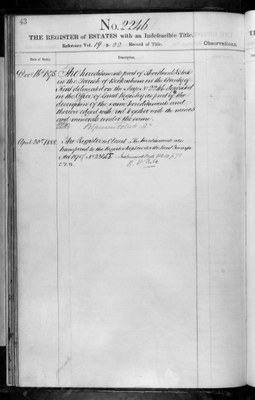 43
No. 2246
THE REGISTER of ESTATES with an Indefeasible Title.
Reference Vol. 19 & 23 Record of Title.
Observations.
Date of Entry.
Description.
The hereditaments part of Shortlands Estate
in the Parish of Beckenham in the County of
Kent delineated on the Map No 2246 deposited
in the Office of Land Registry as part of the
description of the same hereditaments and
thereon edged with red together with the mines
and minerals under the same
April 20th 1888
The Register is closed. The hereditaments are
transferred to the Register kept under the Land Transfer
Act 1875